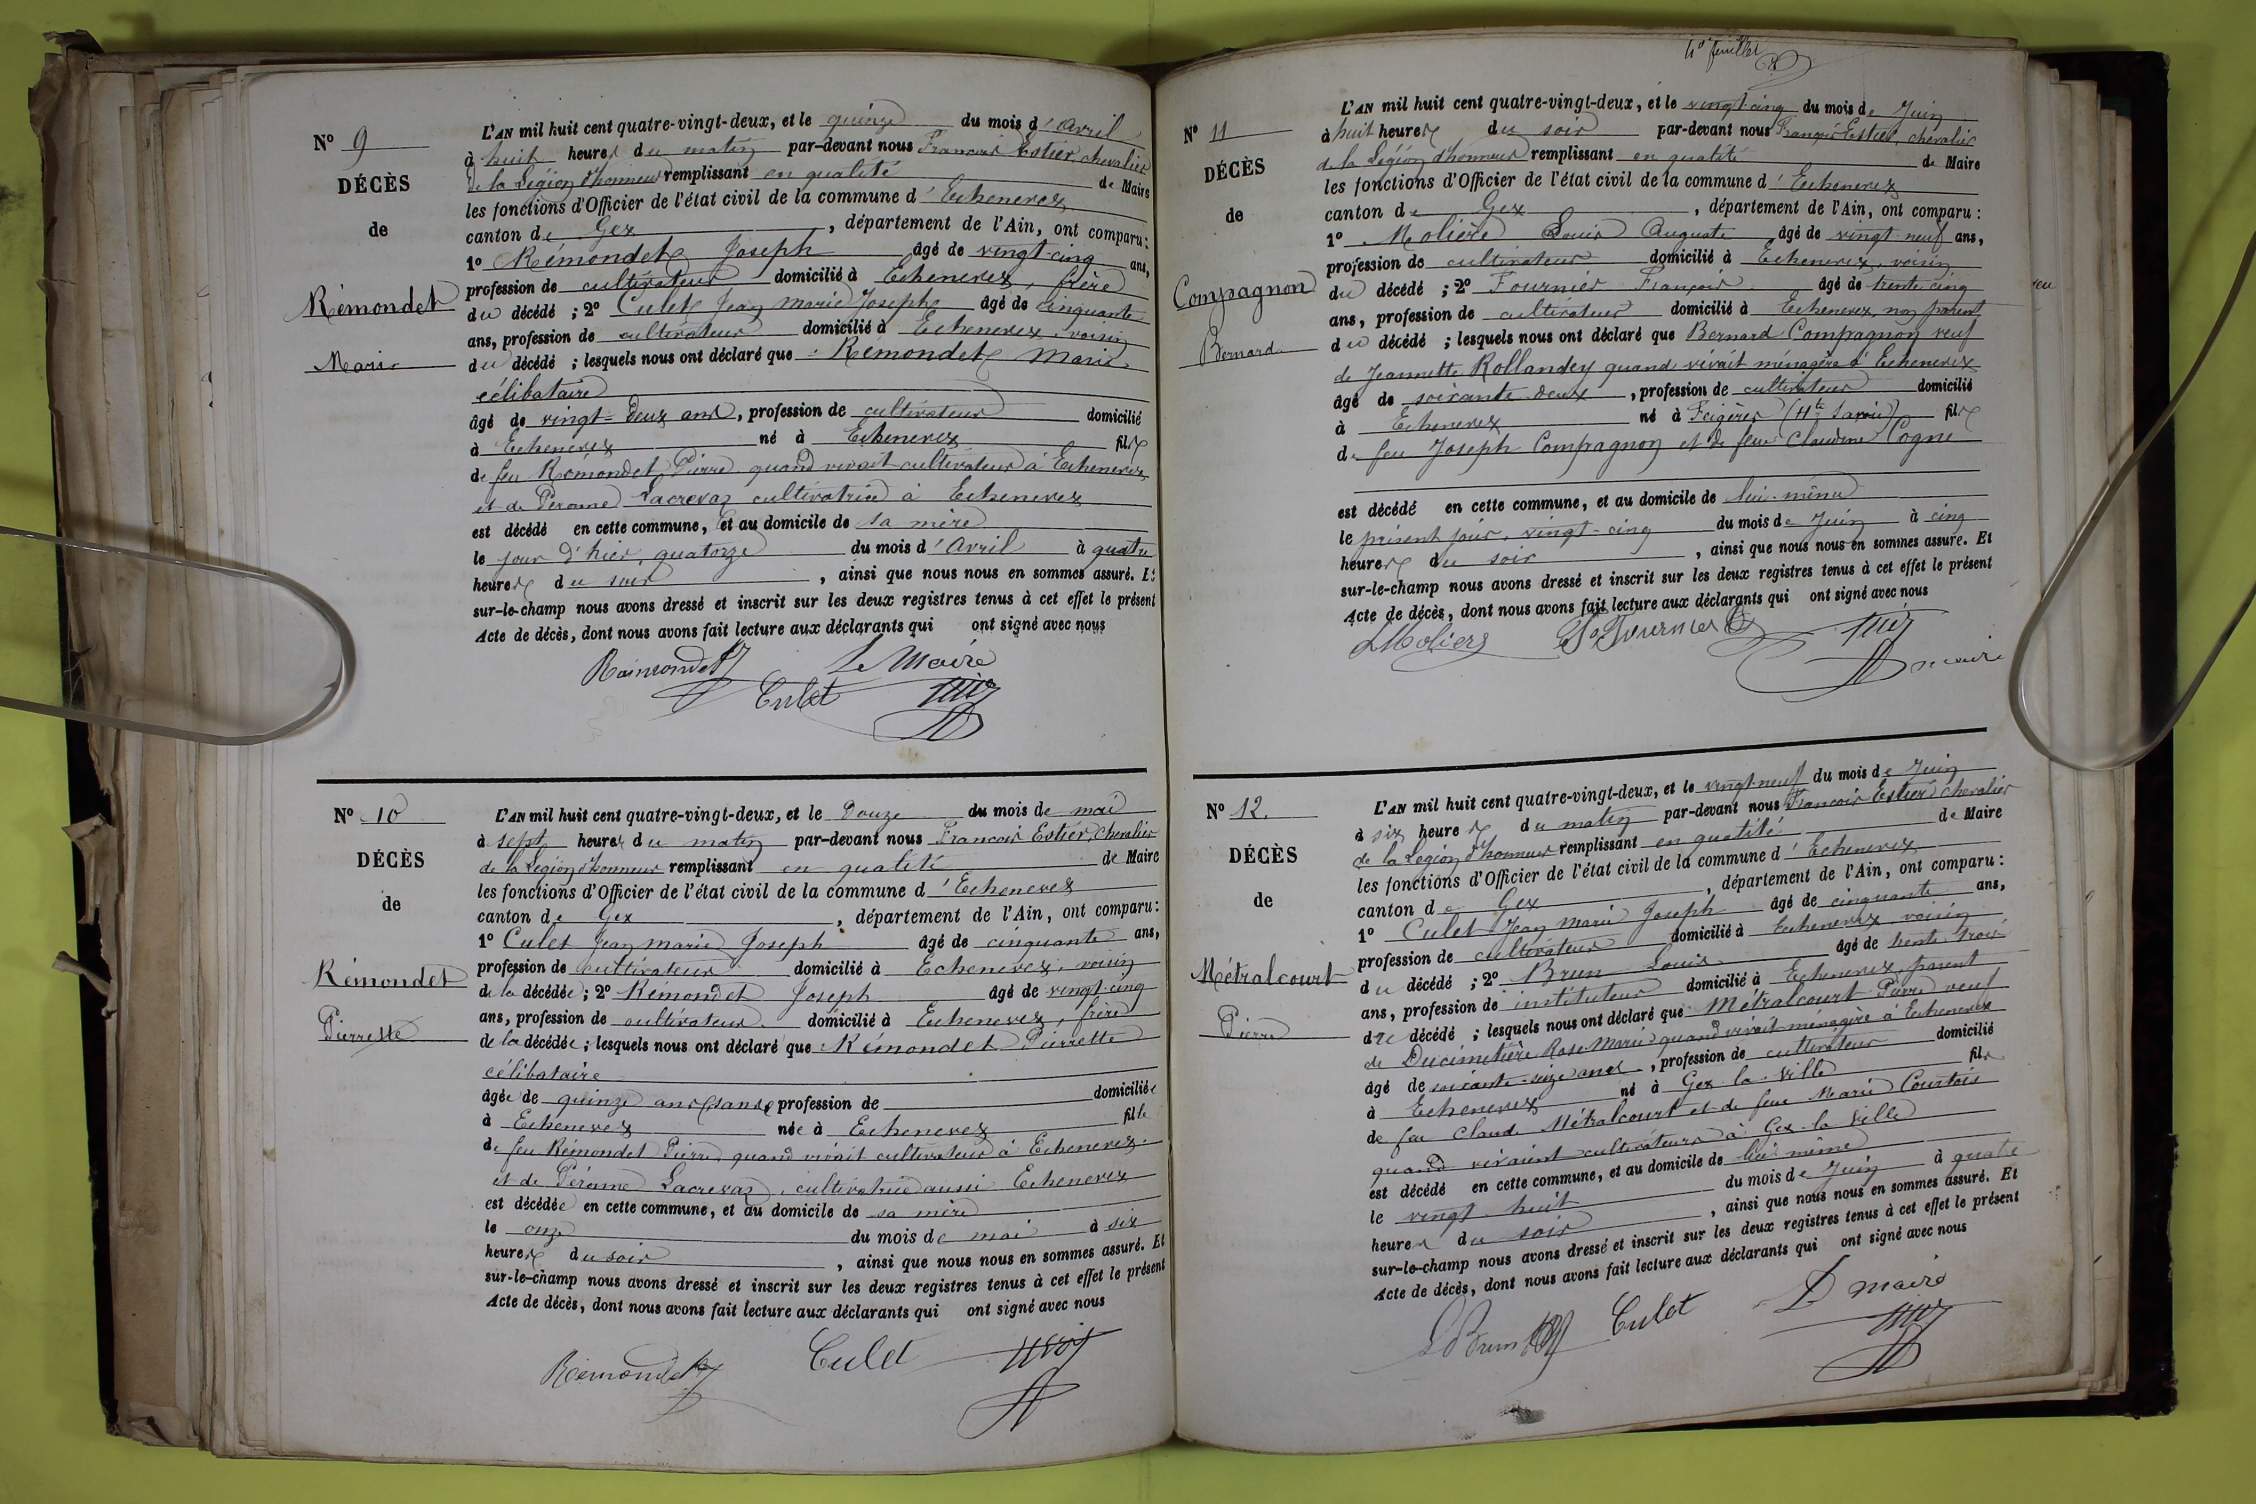 N° 9
DÉCÈS
de
Rémondet
Marie
L'AN mil huit cent quatre-vingt-deux, et le quinze du mois d'Avril
à huit heures du matin par-devant nous François Estier, chevalier
de la Légion d'honneur remplissant en qualité de Maire
les fonctions d'Officier de l'état civil de la commune d'Echenevex
canton de Gex, département de l'Ain, ont comparu :
1° Rémondet Joseph âgé de vingt-cinq ans,
profession de cultivateur domicilié à Echenevex, frère
du décédé ; 2° Culet Jean Marie Josephe âgé de cinquante
ans, profession de cultivateur domicilié à Echenevex, voisin
du décédé ; lesquels nous ont déclaré que Rémondet Marie
célibataire
âgé de vingt-deux ans, profession de cultivateur domicilié
à Echenevex né à Echenevex fils
de feu Rémondet Pierre quand vivait cultivateur à Echenevex
et de Péronne Lacrevaz cultivatrice à Echenevex
est décédé en cette commune, et au domicile de sa mère
le jour d'hier quatorze du mois d'Avril à quatre
heures du soir, ainsi que nous nous en sommes assuré. Et
sur-le-champ nous avons dressé et inscrit sur les deux registres tenus à cet effet le présent
Acte de décès, dont nous avons fait lecture aux déclarants qui ont signé avec nous
Rémondet Le Maire
Culet
N° 10
DÉCÈS
de
Rémondet
Pierrette
L'AN mil huit cent quatre-vingt-deux, et le douze du mois de mai
à sept heures du matin par-devant nous François Estier, chevalier
de la Légion d'honneur remplissant en qualité de Maire
les fonctions d'Officier de l'état civil de la commune d'Echenevex
canton de Gex, département de l'Ain, ont comparu :
1° Culet Jean Marie Joseph âgé de cinquante ans,
profession de cultivateur domicilié à Echenevex, voisin
de la décédée ; 2° Rémondet Joseph âgé de vingt-cinq
ans, profession de cultivateur domicilié à Echenevex, frère
de la décédée ; lesquels nous ont déclaré que Rémondet Pierrette
célibataire
âgée de quinze ans sans profession de domiciliée
à Echenevex née à Echenevex fille
de feu Rémondet Pierre, quand vivait cultivateur à Echenevex
et de Péronne Lacrevaz, cultivatrice aussi Echenevex
est décédée en cette commune, et au domicile de sa mère
le onze du mois de mai à six
heures du soir, ainsi que nous nous en sommes assuré. Et
sur-le-champ nous avons dressé et inscrit sur les deux registres tenus à cet effet le présent
Acte de décès, dont nous avons fait lecture aux déclarants qui ont signé avec nous
Rémondet Culet
feuillet
N° 11
DÉCÈS
de
Compagnon
Bernard
L'AN mil huit cent quatre-vingt-deux, et le vingt-cinq du mois de Juin
à huit heures du soir par-devant nous François Estier, chevalier
de la Légion d'honneur remplissant en qualité de Maire
les fonctions d'Officier de l'état civil de la commune d'Echenevex
canton de Gex, département de l'Ain, ont comparu :
1° Molière Louis Auguste âgé de vingt-neuf ans,
profession de cultivateur domicilié à Echenevex, voisin
du décédé ; 2° Fournier François âgé de trente cinq
ans, profession de cultivateur domicilié à Echenevex, non parent
du décédé ; lesquels nous ont déclaré que Bernard Compagnon veuf
de Jeannette Rollandey quand vivait ménagère à Echenevex
âgé de soixante-deux, profession de cultivateur domicilié
à Echenevex né à Feigères (Hte Savoie) fils
de feu Joseph Compagnon et de feue Claudine Cogne
est décédé en cette commune, et au domicile de lui-même
le présent jour, vingt-cinq du mois de Juin à cinq
heures du soir, ainsi que nous nous en sommes assuré. Et
sur-le-champ nous avons dressé et inscrit sur les deux registres tenus à cet effet le présent
Acte de décès, dont nous avons fait lecture aux déclarants qui ont signé avec nous
LMoliere Fournier
maire
N° 12.
DÉCÈS
de
Métralcourt
Pierre
L'AN mil huit cent quatre-vingt-deux, et le vingt-neuf du mois de Juin
à six heures du matin par-devant nous François Estier chevalier
de la Légion d'honneur remplissant en qualité de Maire
les fonctions d'Officier de l'état civil de la commune d'Echenevex
canton de Gex, département de l'Ain, ont comparu :
1° Culet Jean Marie Joseph âgé de cinquante ans,
profession de cultivateur domicilié à Echenevex voisin
du décédé ; 2° Brun Louis âgé de trente-trois
ans, profession de instituteur domicilié à Echenevex, parent
du décédé ; lesquels nous ont déclaré que Métralcourt Pierre veuf
de Ducimetière Rose-Marie quand vivait ménagère à Echenevex
âgé de soixante-seize ans, profession de cultivateur domicilié
à Echenevex né à Gex-la-Ville fils
de feu Claude Métralcourt et de feue Marie Courtois
quand vivaient cultivateurs à Gex-la-Ville
est décédé en cette commune, et au domicile de lui-même
le vingt-huit du mois de Juin à quatre
heures du soir, ainsi que nous nous en sommes assuré. Et
sur-le-champ nous avons dressé et inscrit sur les deux registres tenus à cet effet le présent
Acte de décès, dont nous avons fait lecture aux déclarants qui ont signé avec nous
LBrun Culet Le maire